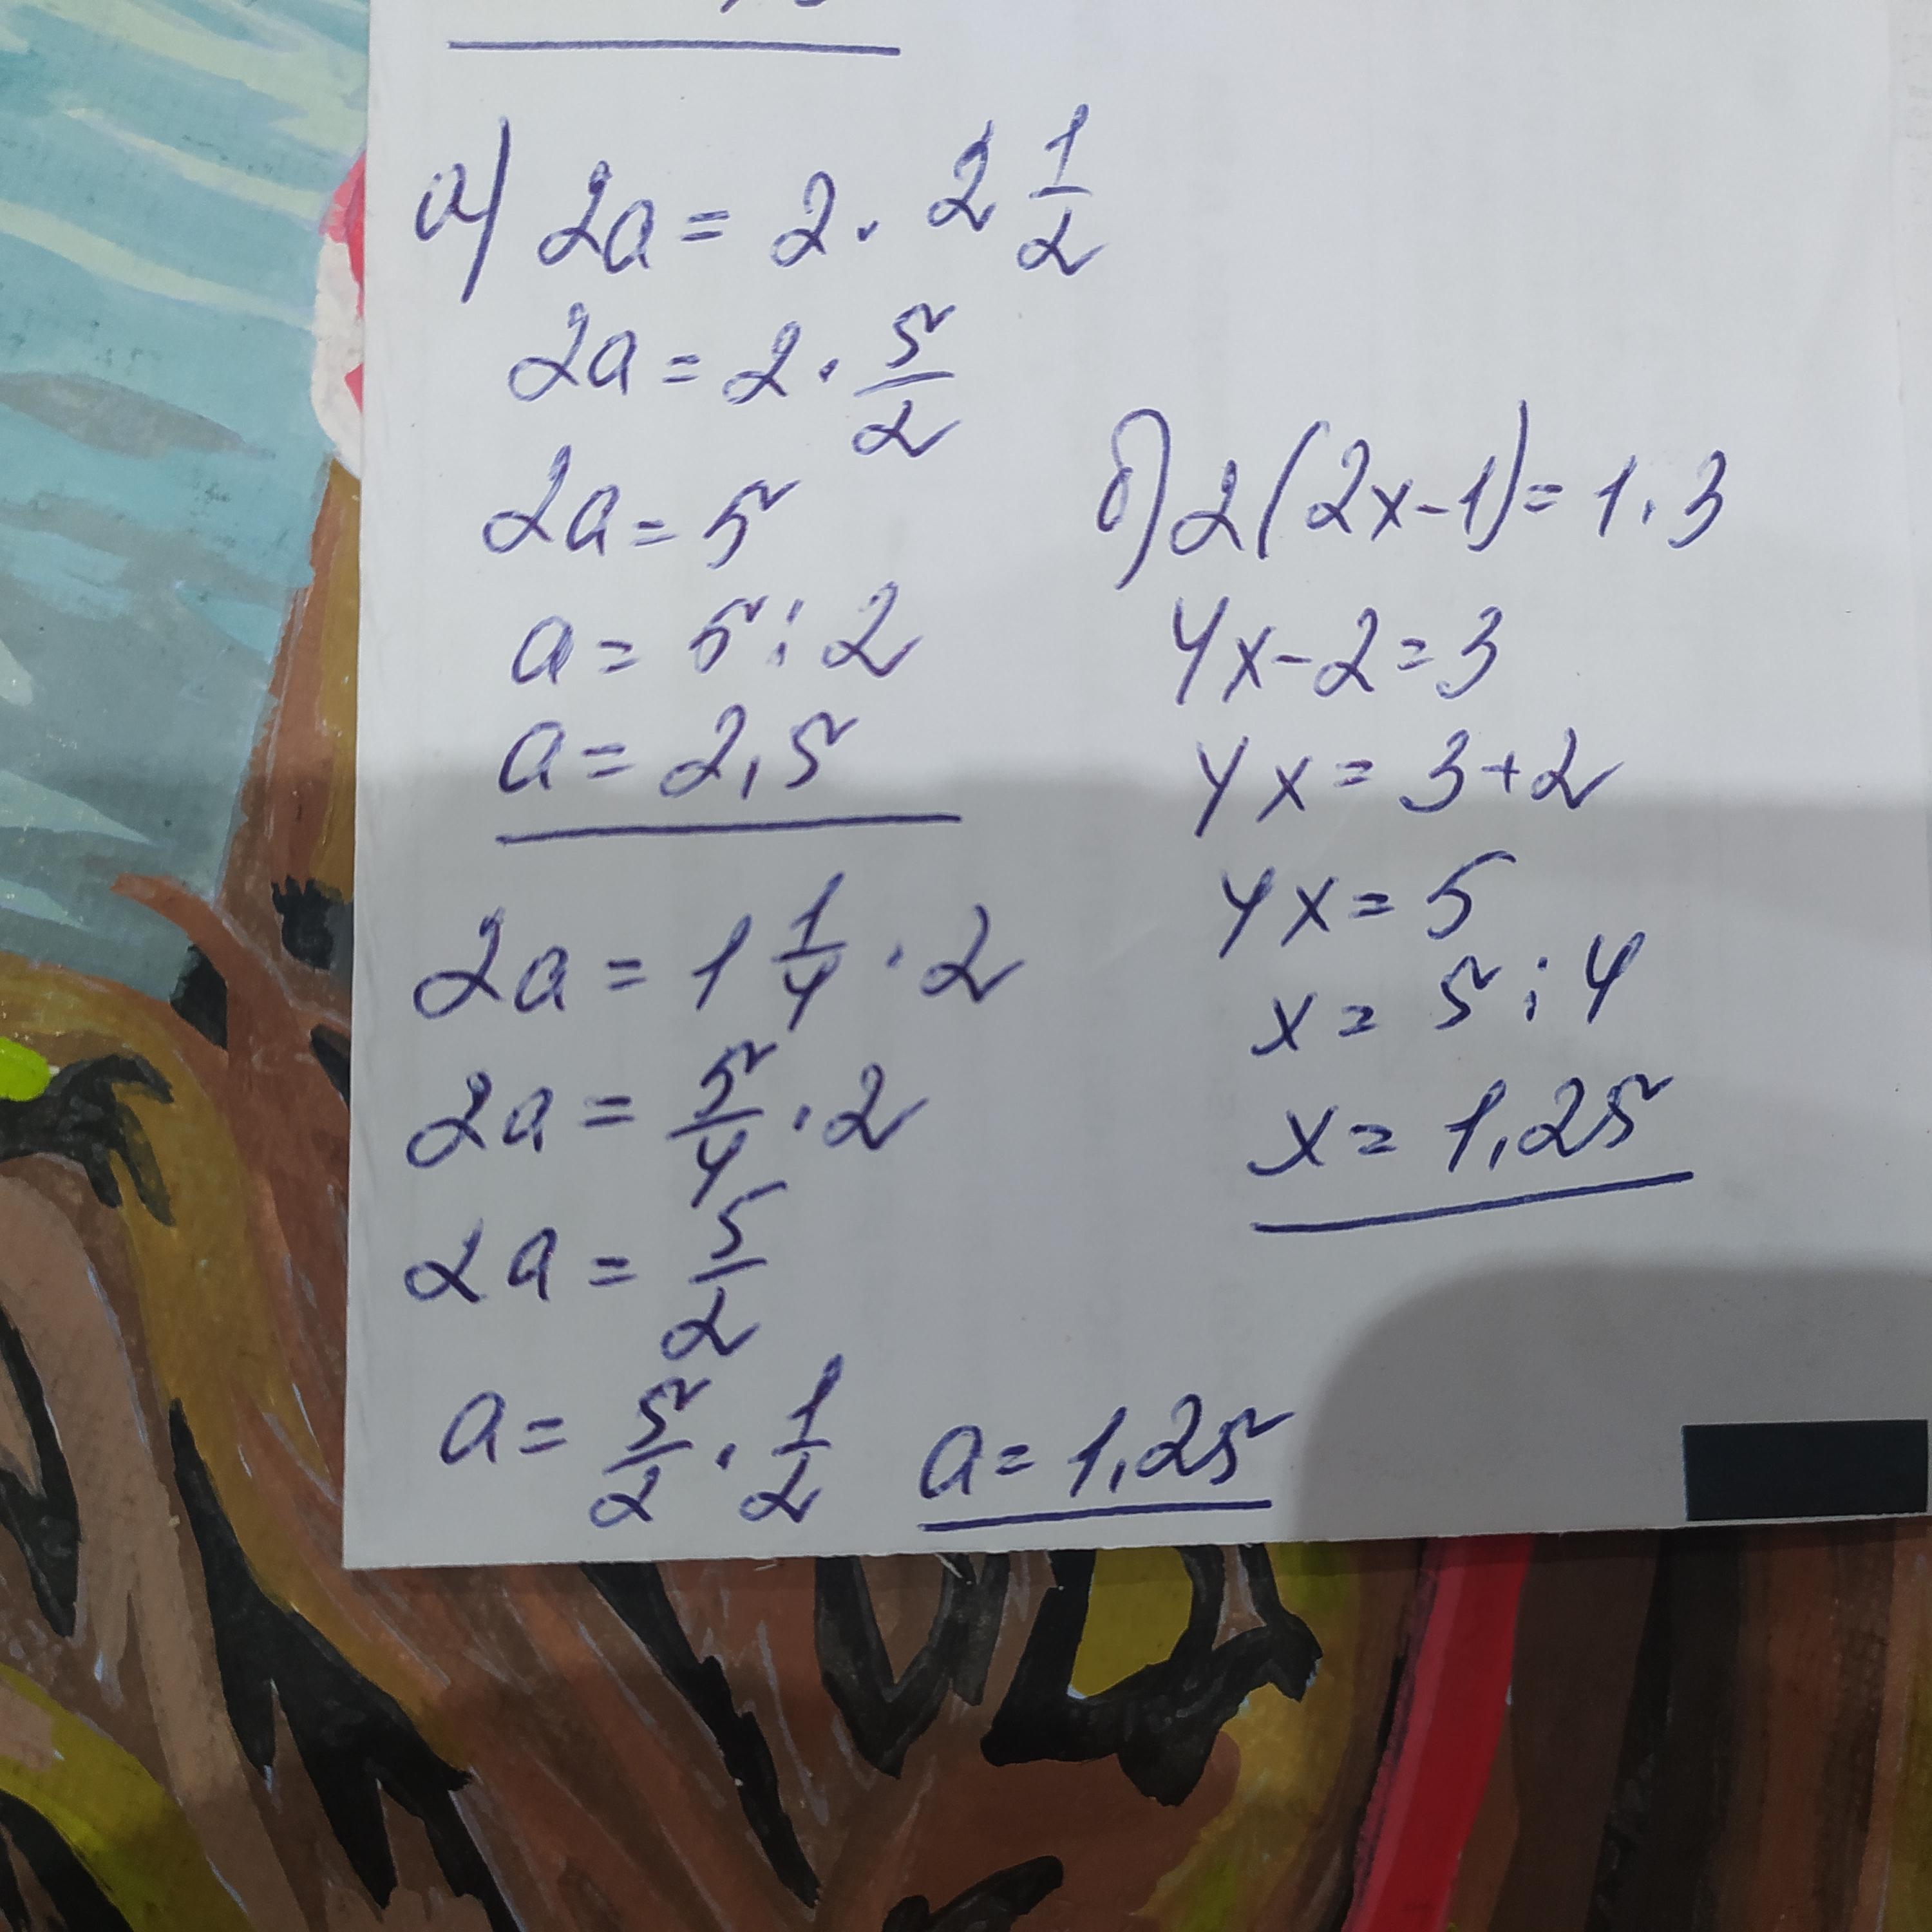 а) 2a = 2 · 2 1/2
2a = 2 · 5/2
2a = 5
a = 5 : 2
a = 2,5
2a = 1 1/4 · 2
2a = 5/4 · 2
2a = 5/2
a = 5/2 · 1/2 a = 1,25
б) 2(2x-1) = 1·3
4x-2=3
4x = 3+2
4x = 5
x = 5 : 4
x = 1,25